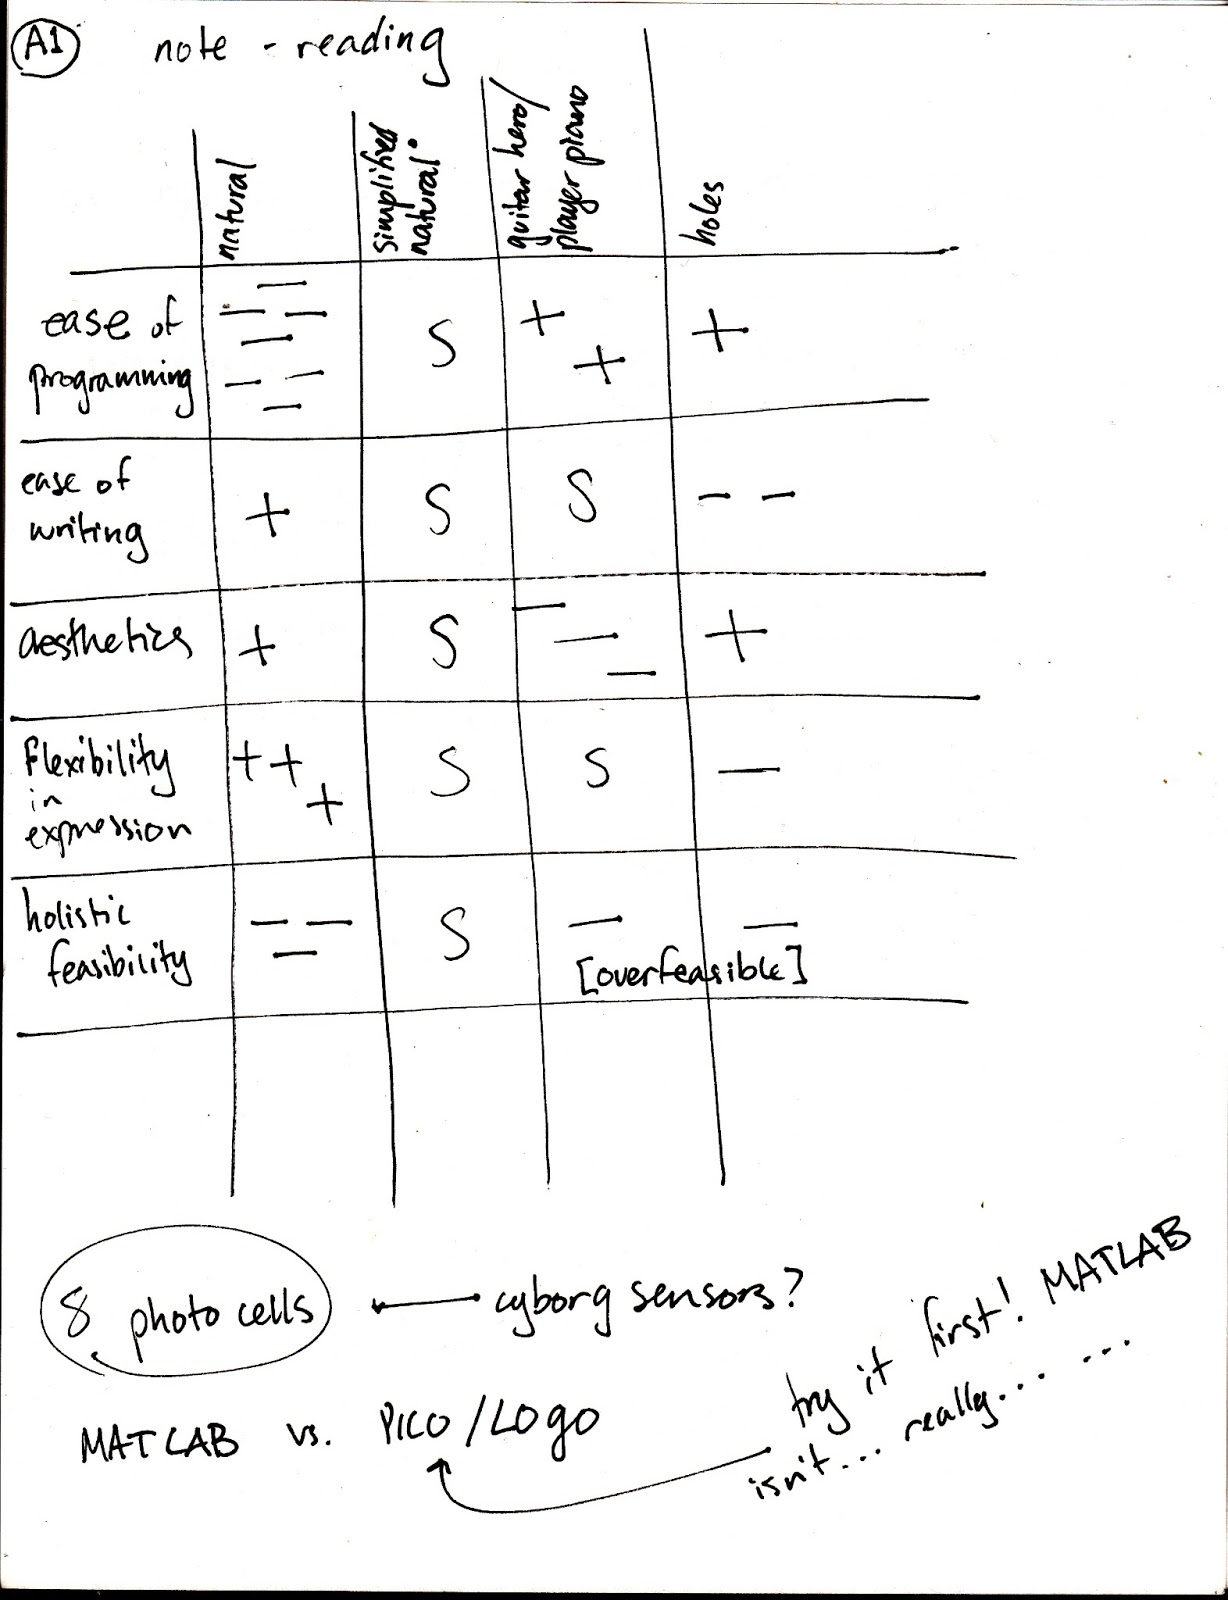 A1 note - reading
natural
simplified
natural
guitar hero/
player piano
holes
ease of
programming
— — — — — — — S + + +
ease of
writing
+ S S — —
aesthetics + S — — — +
flexibility
in
expression
+ + + S S —
holistic
feasibility
— — — S — —
[overfeasible]
8 photo cells — cyborg sensors?
MATLAB vs. PICO/LOgo
try it first! MATLAB
isn't... really... ...